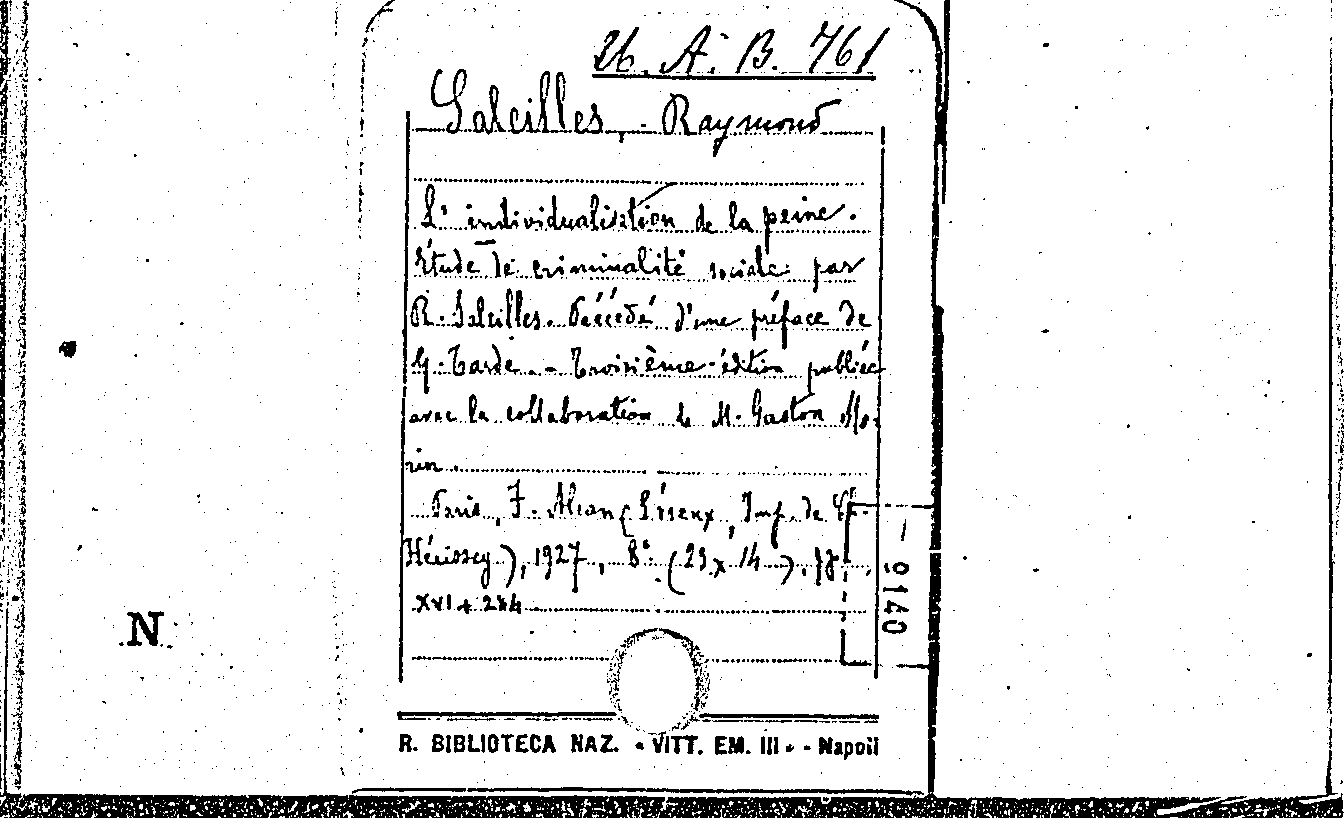 26. A. B. 761
Saleilles, - Raymond
L'individualisation de la peine.
Étude de criminalité sociale par
R. Saleilles. Précédé d'une préface de
G. Tarde. - Troisième édition publiée
avec la collaboration de M. Gaston Mo-
rin.
Paris, F. Alcan (Lisieux, Imp. de Ch.
Hérissey), 1927, 8°. (23 x 14),
XVI + 284
9140
N
R. BIBLIOTECA NAZ. « VITT. EM. III » - Napoli